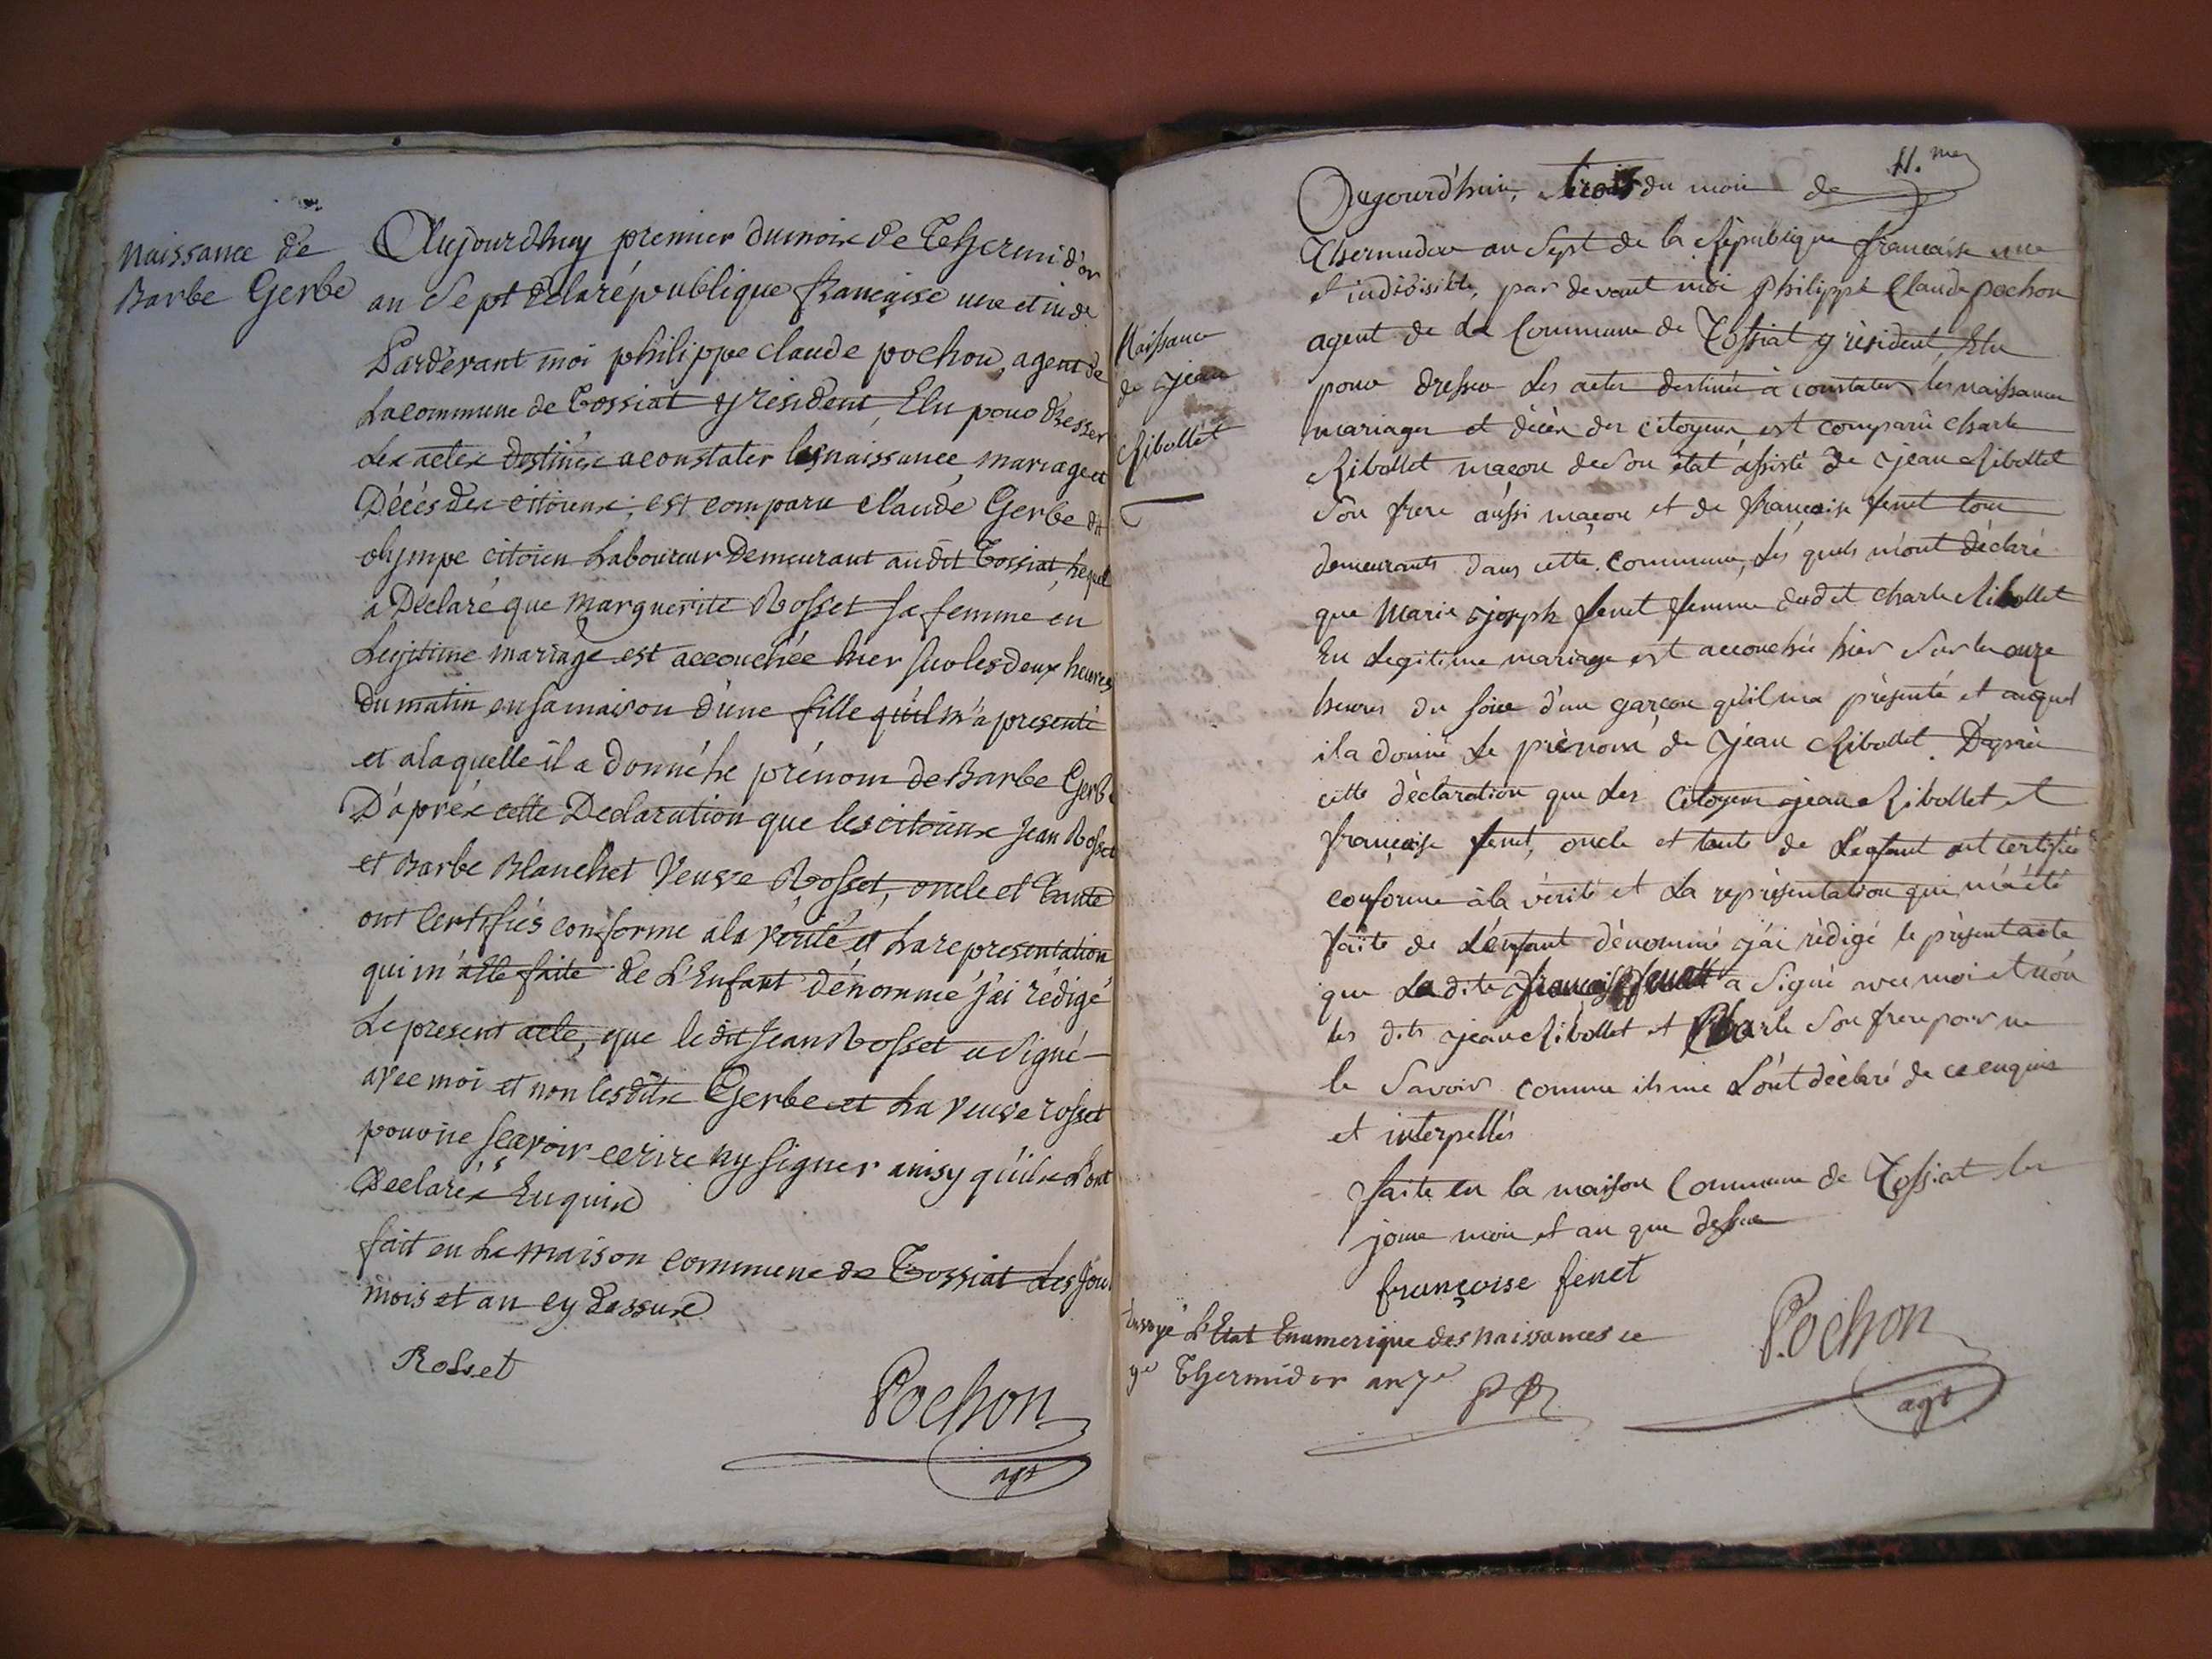 Naissance de
Barbe Gerbe
Aujourdhuy premier dumois de Thermidor
an Sept Delarépublique française une et ind
Pardevant moi philippe claude pochon, agent de
Lacommune de Tossiat y résident, Elu pour dresser
Les actes destinés aconstater lesnaissance, mariage et
Décès des citoiens, est comparu claude Gerbe dit
olympe citoien Laboureur Demeurant audit Tossiat, Lequel
a Déclaré que marguerite Rosset sa femme en
Legitime mariage est accouchée hier sur lesdeux heures
du matin en samaison d'une fille qu'il m'a presenté
et alaquelle il a donné le prénom de Barbe Gerbe
D'après cette Declaration que lescitoiens Jean Rosset
et Barbe Blanchet Veuve Rosset, oncle et Tante
ont Certifiés conforme ala vérité et Larepresentation
qui m'a été faite de L'Enfant dénommé j'ai rédigé
Le present acte, que le dit Jean Rosset a signé
avec moi et non lesdits Gerbe et La veuve rosset
pour ne sçavoir ecrire ny signer ainsy qu'ils L'ont
Déclarés Enquis
fait en La maison commune de Tossiat Les jour
mois et an cy dessus
Rosset
Pochon
agt
11.me
Naissance
de Jean
Ribollet
Aujourd'huir, trois du mois de
Thermidor an Sept de la République française une
et indivisible, par devant moi Philippe Claude pochon
agent de La Commune de Tossiat y résident, Elu
pour dresser Les actes destinés à constater les naissances
mariages et décès des citoyens, est comparû charle
Ribollet maçon de Son état assisté de jean Ribollet
Son frere aussi maçon et de françoise fenet tous
demeurants dans cette Commune, Lés quels m'ont déclaré
que Marie joseph fenet femme dudit charle Ribollet
En Legitime mariage est accouchée hier Sur les onze
heures du soir d'un garçon qu'il ma présenté et auquel
il a donné Le prénom de jean Ribollet. D'après
cette déclaration que Les Citoyens jean Ribollet et
françoise fenet, oncle et tante de L'enfant ont certifiée
conforme à la vérité et La représentation qui m'a été
faite de L'enfant dénommé j'ai rédigé le présent acte
que La dite françoise fenet a Signé avec moi et non
les dits jean Ribollet et Charle Son frere pour ne
le Savoir comme ils me L'ont déclaré de ce enquis
et interpellés
faite en la maison Commune de Tossiat les
jour mois et an que dessus
françoise fenet
Envoyé L'Etat Enumerique des naissances ce
9e Thermidor an 7e
Pochon
agt